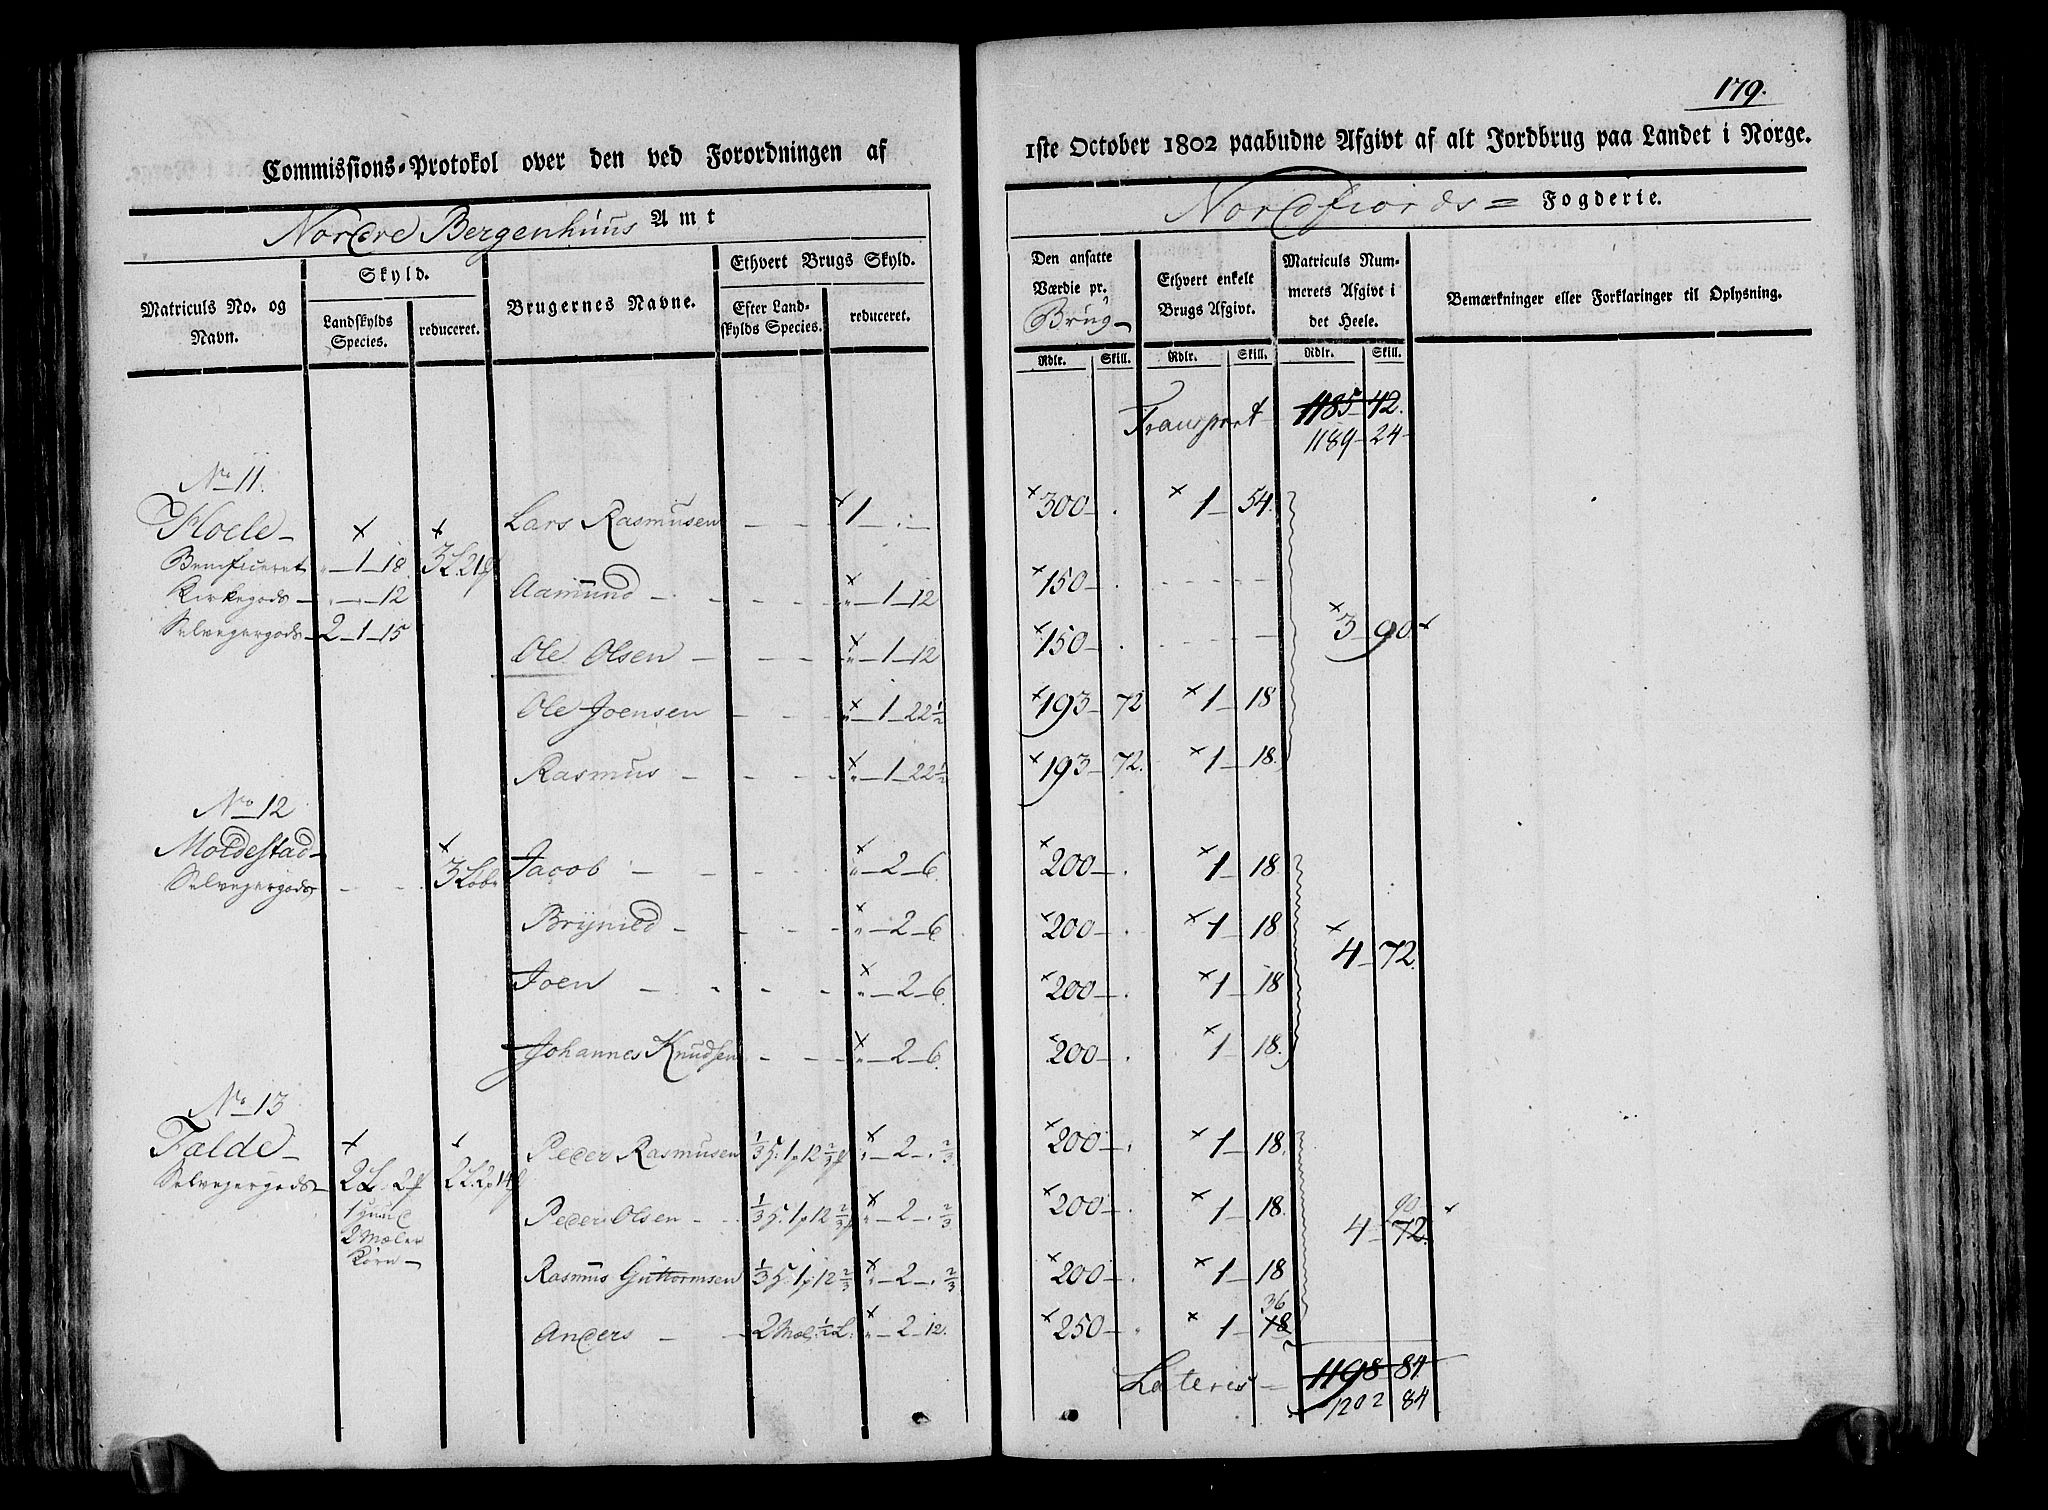 179.
Commissions-Protokol over den ved Forordningen af 1ste October 1802 paabudne Afgivt af alt Jordbrug paa Landet i Norge.
Nordre Bergenhuus Amt
Nordfiords = Fogderie.
Matriculs No. og Navn.
Skyld.
Landskylds Species.
reduceret.
Brugernes Navne.
Ethvert Brugs Skyld.
Efter Landskylds Species.
reduceret.
Den ansatte Værdie pr. Brug
Rdlr. Skill.
Ethvert enkelt Brugs Afgivt.
Rdlr. Skill.
Matriculs Nummerets Afgivt i det Heele.
Rdlr. Skill.
Bemærkninger eller Forklaringer til Oplysning.
Transport 1185 - 42.
1189 - 24
No 11.
Floele - Lars Rasmusen - - × 1 - . - × 300 - . × 1 - 54.
Beneficeret - 1 - 18
Kirkegods - " - 12 Aamund - - - × " - 1 - 12 × 150 - .
Selvegergods - 2 - 1 - 15 × 3 - 90 ×
Ole Olsen - - - × " - 1 - 12 × 150 - .
Ole Joensen - - - × " - 1 - 22 1/2 × 193 - 72 × 1 - 18
Rasmus - - - × " - 1 - 22 1/2 × 193 - 72. × 1 - 18.
No 12
Moldestad - Jacob - - - × " - 2 - 6. × 200 - . × 1 - 18.
Selvegergods - - × 3 Løbe
Brynild - - - × " - 2 - 6. × 200 - . × 1 - 18
× 4 - 72.
Joen - - - × " - 2 - 6. × 200 - . × 1 - 18
Johannes Knudsen - - - × " - 2 - 6. × 200 - . × 1 - 18.
No 13
Falde - Peder Rasmusen × " - 2 - . 2/3 × 200 - . × 1 - 18.
Selvegergods -
2 Mæler
Korn -
Peder Olsen - - × " - 2 - . 2/3 × 200 - . × 1 - 18.
90
4 - 72. ×
Rasmus Guttormsen × " - 2 - . 2/3 × 200 - . × 1 - 18
36
Anders - - 2 Mæl. 1/2 L. × " - 2 - 12. × 250 - " × 1 - 18
Lateris = 1198 - 84
1202 84